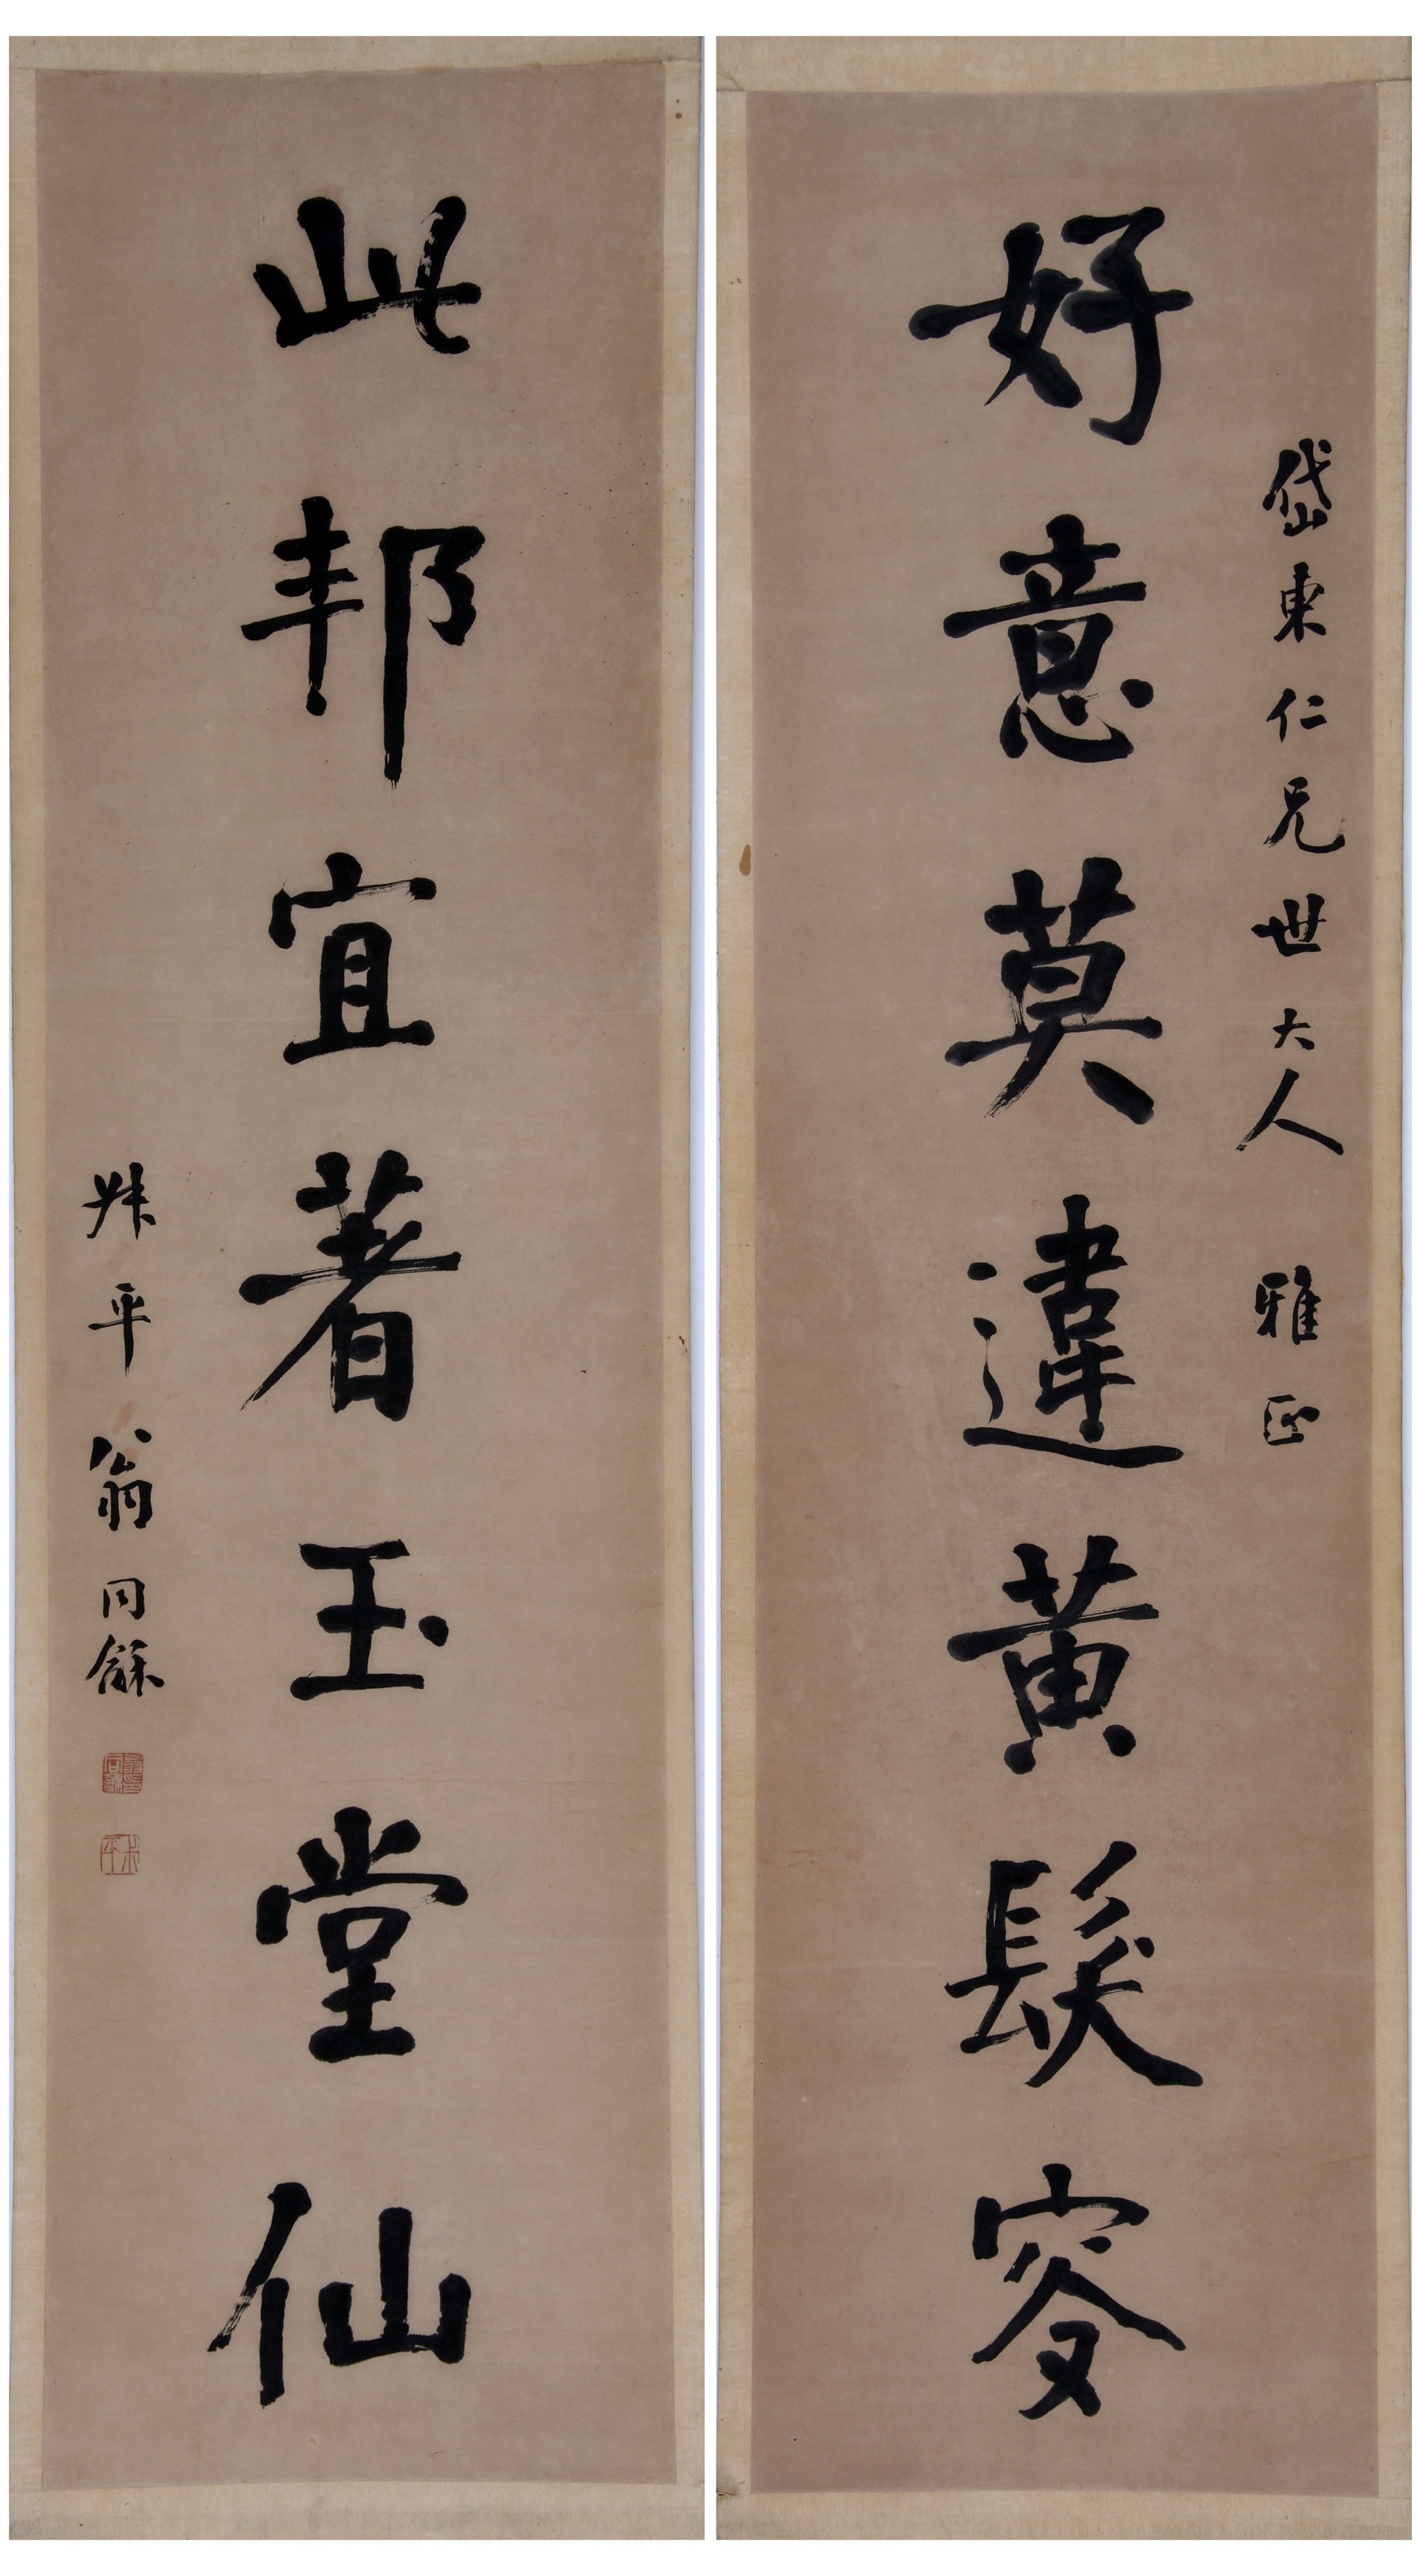 岱東仁兄世大人 雅正
好意莫違黃髮叜
此邦宜著玉堂仙
叔平翁同龢
叔平